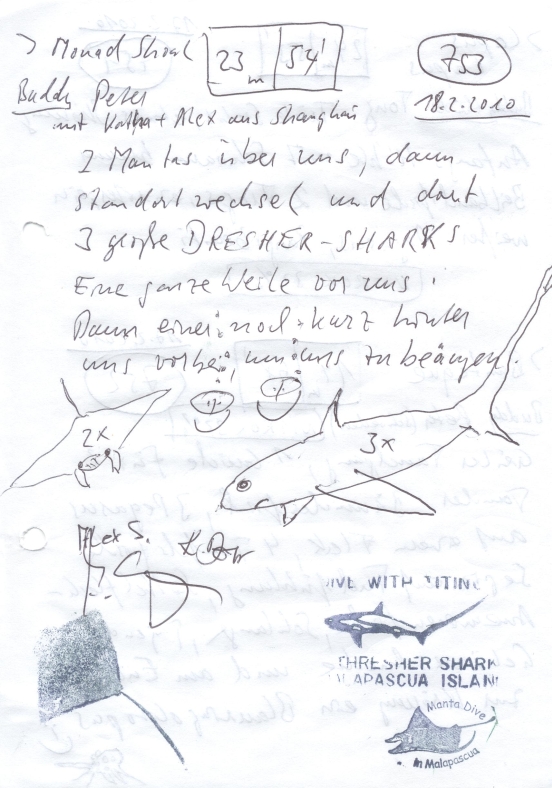 > Monad Shoal 23 m 54' 753
Buddy Peter 18.2.2010
mit Katha + Alex aus Shanghai
2 Mantas über uns, dann
Standortwechsel und dort
3 große DRESHER-SHARKS
Eine ganze Weile vor uns!
Dann einer noch kurz hinter
uns vorbei, um uns zu beäugen.
2x
3x
Alex S.
DIVE WITH TITING
THRESHER SHARK
MALAPASCUA ISLAND
Manta Dive
in Malapascua